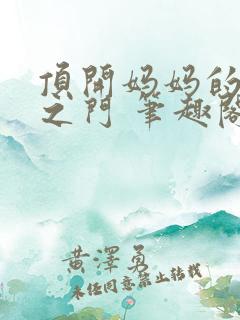 頂開妈妈的
之门 筆趣阁
黄澤勇
未经同意禁止转载